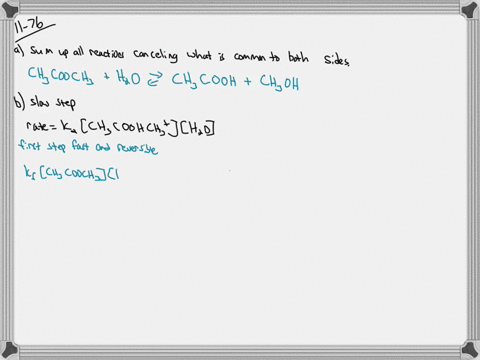 11-76
a) Sum up all reactions canceling what is common to both sides
CH₃COOCH₃ + H₂O ⇌ CH₃COOH + CH₃OH
b) slow step
rate = k₂[CH₃COOHCH₃⁺][H₂O]
first step fast and reversible
k₁[CH₃COOCH₃][